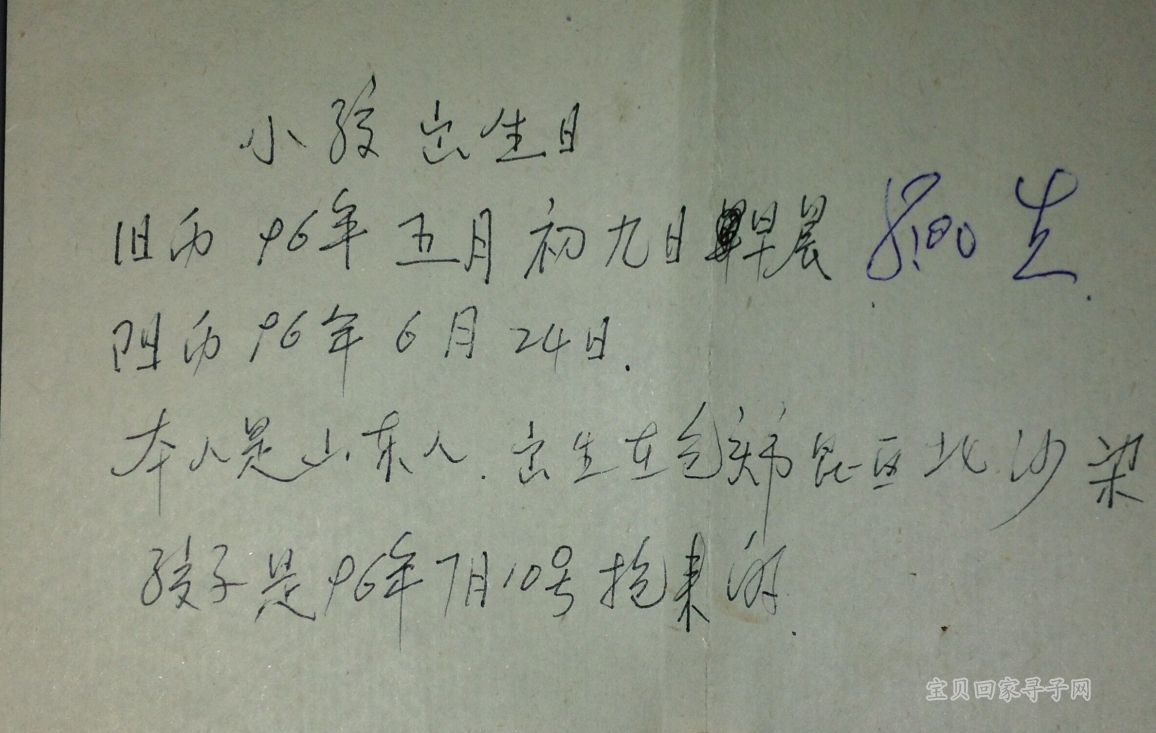 小孩出生日
旧历96年五月初九日早晨8:00点.
阳历96年6月24日.
本人是山东人.出生在包头市昆区北沙梁
孩子是96年7月10号抱来的.
宝贝回家寻子网